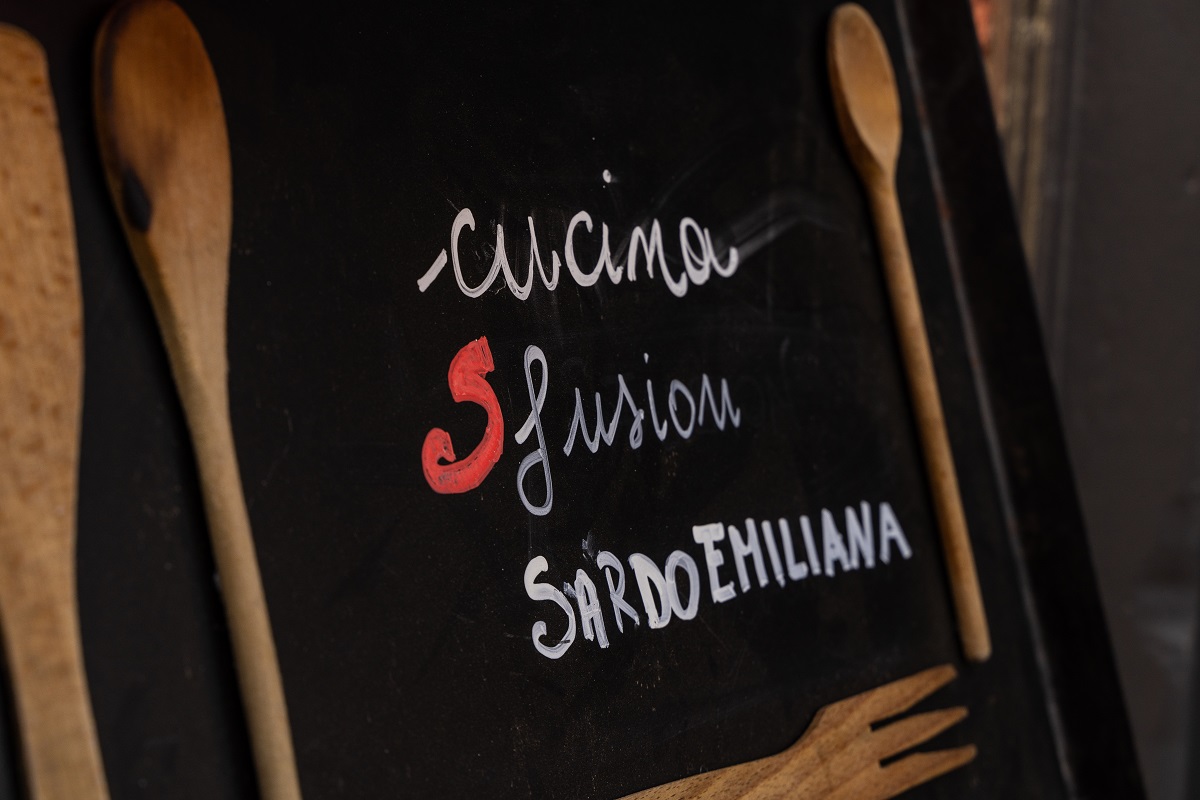 -cucina
Sfusion
SARDOEMILIANA